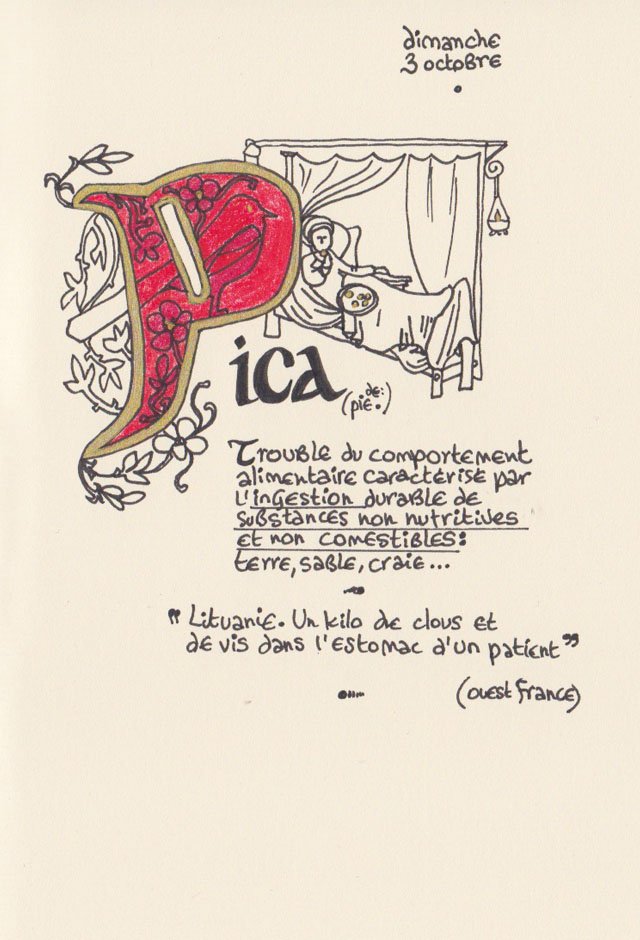 dimanche
3 octobre
Pica
(de:
pie.)
Trouble du comportement
alimentaire caractérisé par
l'ingestion durable de
substances non nutritives
et non comestibles:
terre, sable, craie...
"Lituanie. Un kilo de clous et
de vis dans l'estomac d'un patient"
(ouest france)